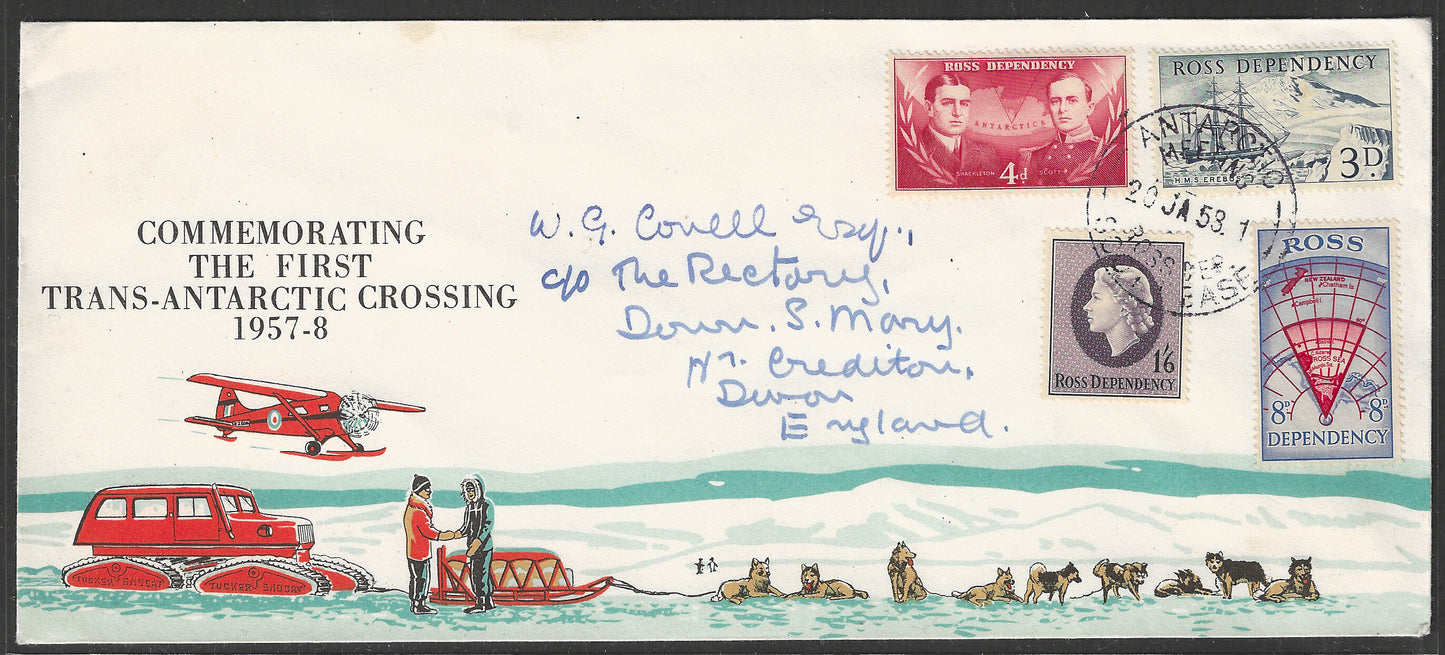 COMMEMORATING
THE FIRST
TRANS-ANTARCTIC CROSSING
1957-8
W. G. Covell Esq.,
c/o The Rectory,
Down. S. Mary.
Nr. Crediton,
Devon
England.
ROSS DEPENDENCY
ANTARCTICA
SHACKLETON
4d
SCOTT
ROSS DEPENDENCY
H.M.S. EREBUS
3D.
1/6
ROSS DEPENDENCY
ROSS
NEW ZEALAND
Chatham Is.
Campbell I.
60°
ROSS SEA
8D
8D
DEPENDENCY
ANTARCTIC
MEETING
20 JA 58. 1
ROSS DEP.
TUCKER SNOCAT
TUCKER SNOCAT